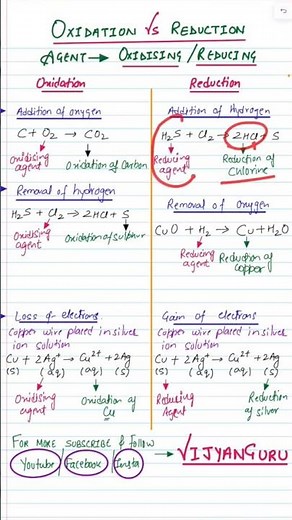 OXIDATION VS REDUCTION
AGENT → OXIDISING / REDUCING
Oxidation
Addition of oxygen
C + O₂ → CO₂
Oxidising agent
Oxidation of Carbon
Removal of hydrogen
H₂S + Cl₂ → 2HCl + S
Oxidising agent
Oxidation of Sulphur
Loss of electrons
Copper wire placed in silver
ion solution
Cu + 2Ag⁺ → Cu²⁺ + 2Ag
(s) (aq) (aq) (s)
Oxidising agent
Oxidation of Cu
Reduction
Addition of Hydrogen
H₂S + Cl₂ → 2HCl + S
Reducing agent
Reduction of Chlorine
Removal of Oxygen
CuO + H₂ → Cu + H₂O
Reducing agent
Reduction of Copper
Gain of electrons
Copper wire placed in silver
ion solution
Cu + 2Ag⁺ → Cu²⁺ + 2Ag
(s) (aq) (aq) (s)
Reducing Agent
Reduction of silver
FOR MORE SUBSCRIBE & follow
Youtube / Facebook / Insta → VIJYANGURU